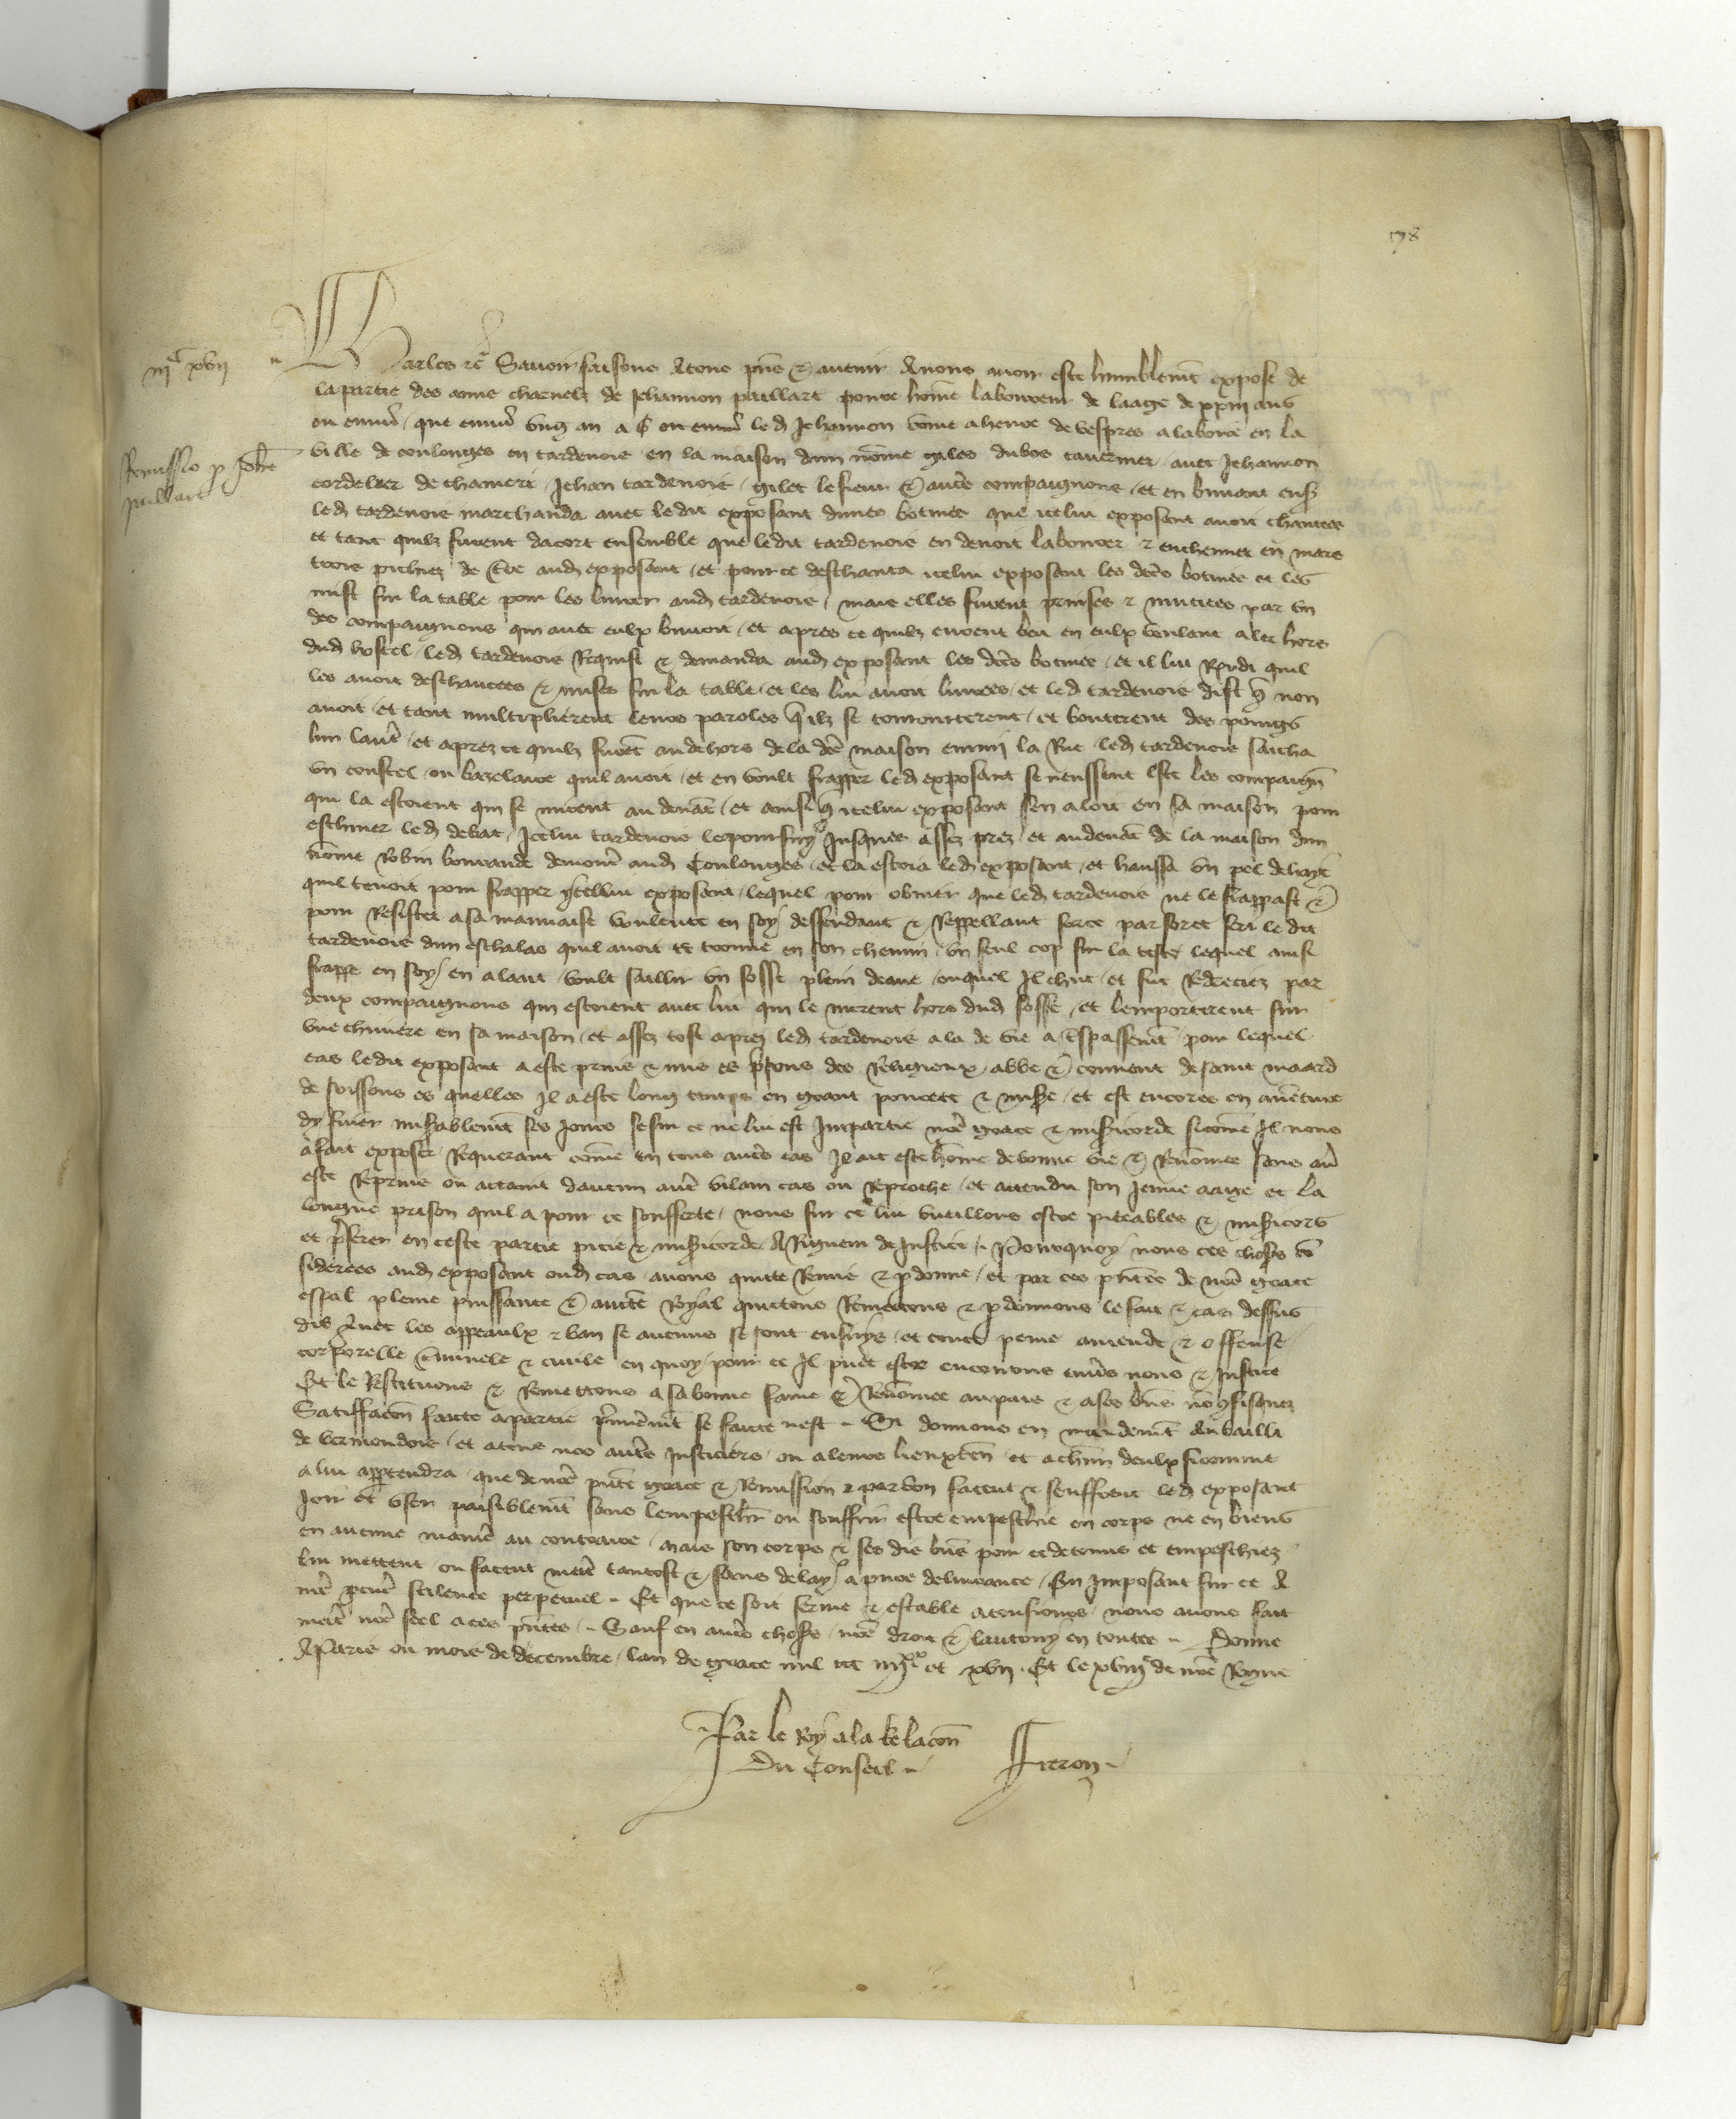 178
iijc xvij
Charles etc Savoir faisons A tous pñs et avenir A nous avoir este humblemt expose de
la partie des amis charnelz de Jehannon paillart povre home laboureur de laage de xxiij ans
ou environ / que environ ung an a ou environ led Jehannon venu a heure de vespres a laboure en la
Remissio p Johe
paillart
ville de coulonges en tardenois en la maison dun nome giles dubos tavernier / avec Jehannon
cordelier de chameri / Jehan tardenois / gilet lesueur et autres compaignons / et en buvant ens
led tardenois marchanda avec ledit exposant dunes botines que icelui exposant avoit chaucees
et tant quilz furent dacort ensemble que ledit tardenois en devoit labourer et enchemer en mars
trois pichez de aud exposant / et pour ce deschauca icelui exposant les dces botines et les
mist sur la table pour les livrer aud tardenois / mais elles furent prinses et muciees par un
des compaignons qui avec eulx buvoit / et apres ce quilz eurent beu en eulx voulant aler hors
dud hostel / led tardenois Requist et demanda aud exposant les dces botines / et il lui Rpndi quil
les avoit deschaucees et mises sur la table / et les lui avoit livrees / et led tardenois dist q non
avoit / et tant multiplierent leurs paroles q ilz se courroucerent / et bouterent des poings
lun lautre / et aprez ce quilz furet au dehors de la dce maison emmi la Rue / led tardenois sacha
un coustel ou bazelaire quil avoit / et en voult frapper led exposant se neussent este les compaigns
qui la estoient qui se mirent au devat / et ainsi q icelui exposant sen aloit en sa maison pour
eschiver led debat / Icelui tardenois le poursuy Jusques assez prez / et au devat de la maison dun
nome Robin demour aud Coulonges / et la estoit led exposant / et haussa un pel de haye
quil tenoit pour frapper ycellui exposant / lequel pour obvier que led tardenois ne le frappast et
pour Resister a sa mauvaise voulente en soy deffendant et Reppellant force par force feri ledit
tardenois dun eschalas quil avoit trouve en son chemin / un seul cop sur la teste / lequel ainsi
frappe en soy en alant / voult saillir un fosse plein deaue / ouquel Il chut / et fut Redreciez par
deux compaignons qui estoient avec lui qui le mirent hors dud fosse / et lemporterent sur
une civiere en sa maison / et assez tost aprez led tardenois ala de vie a trespassemt / pour lequel
cas ledit exposant a este prins et mis es prisons des Religieux abbe et couvent de saint maard
de soissons es quelles Il a este long temps en grant povrete et misere / et est encores en aventure
dy finer miserablemt ses Jours se sur ce ne lui est Impartie nre grace et misericorde sicome Il nous
a fait exposer / Requerant come en tous autres cas Il ait este home de bonne vie et Renomee sans avoir
este Reprins ou attaint daucun autre vilain cas ou Reproche / et attendu son Jeune aage et la
longue prison quil a pour ce soufferte / nous sur ce lui vueillons estre piteables et misericors
et pferer en ceste partie pitie et misericorde A Rigueur de Justice Pourquoy nous ces choses con
siderees aud exposant oud cas / avons quitte Remis et pdonne / et par ces pntes de nre grace
espal pleine puissance et aucte Royal quittons Remettons et pdonnons le fait et cas dessus
dis Avec les appeaulx et ban se aucuns se sont ensuys / et toute peine amende et offense
corporelle criminele et civile en quoy pour ce Il puet estre encourus envrs nous et Justice
Et le Restituons et Remettons a sa bonne fame et Renomee au pais et a ses bns non gfisquez
Satiffacon faicte a partie pmieremt se faicte nest Si donnons en mandemt Au bailli
de vermendois / et a tous nos autres Justiciers / ou a leurs lieuxten / et a chun deulx sicomme
a lui apptendra / que de nre pnte grace et Remission et pardon facent et seuffrent led exposant
Joir et user paisiblemt sans lempeschr ou souffrir estre empeschie en corps ne en biens
en aucune maniere au contraire / mais son corps et ses dis bns pour ce detenus et empeschiez
lui mettent ou facent mettre tantost et sans delay a pure delivrance / En Imposant sur ce A
nre pcur scilence perpetuel Et que ce soit ferme et estable a tousiours / nous avons fait
mettre nre seel a ces pntes / Sauf en autres choses nre droit et lautruy en toutes Donne
A Paris ou mois de decembre / lan de grace mil ccc iiijxx et xvij Et le xviije de nre Regne
Par le Roy a la Relacon
Du Conseil
Freron